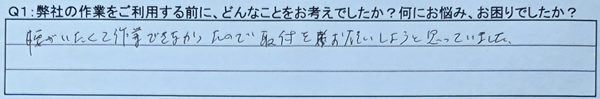 Q1:弊社の作業をご利用する前に、どんなことをお考えでしたか？何にお悩み、お困りでしたか？
腰がいたくて作業できなかったので取付をお願いしようと思っていました。